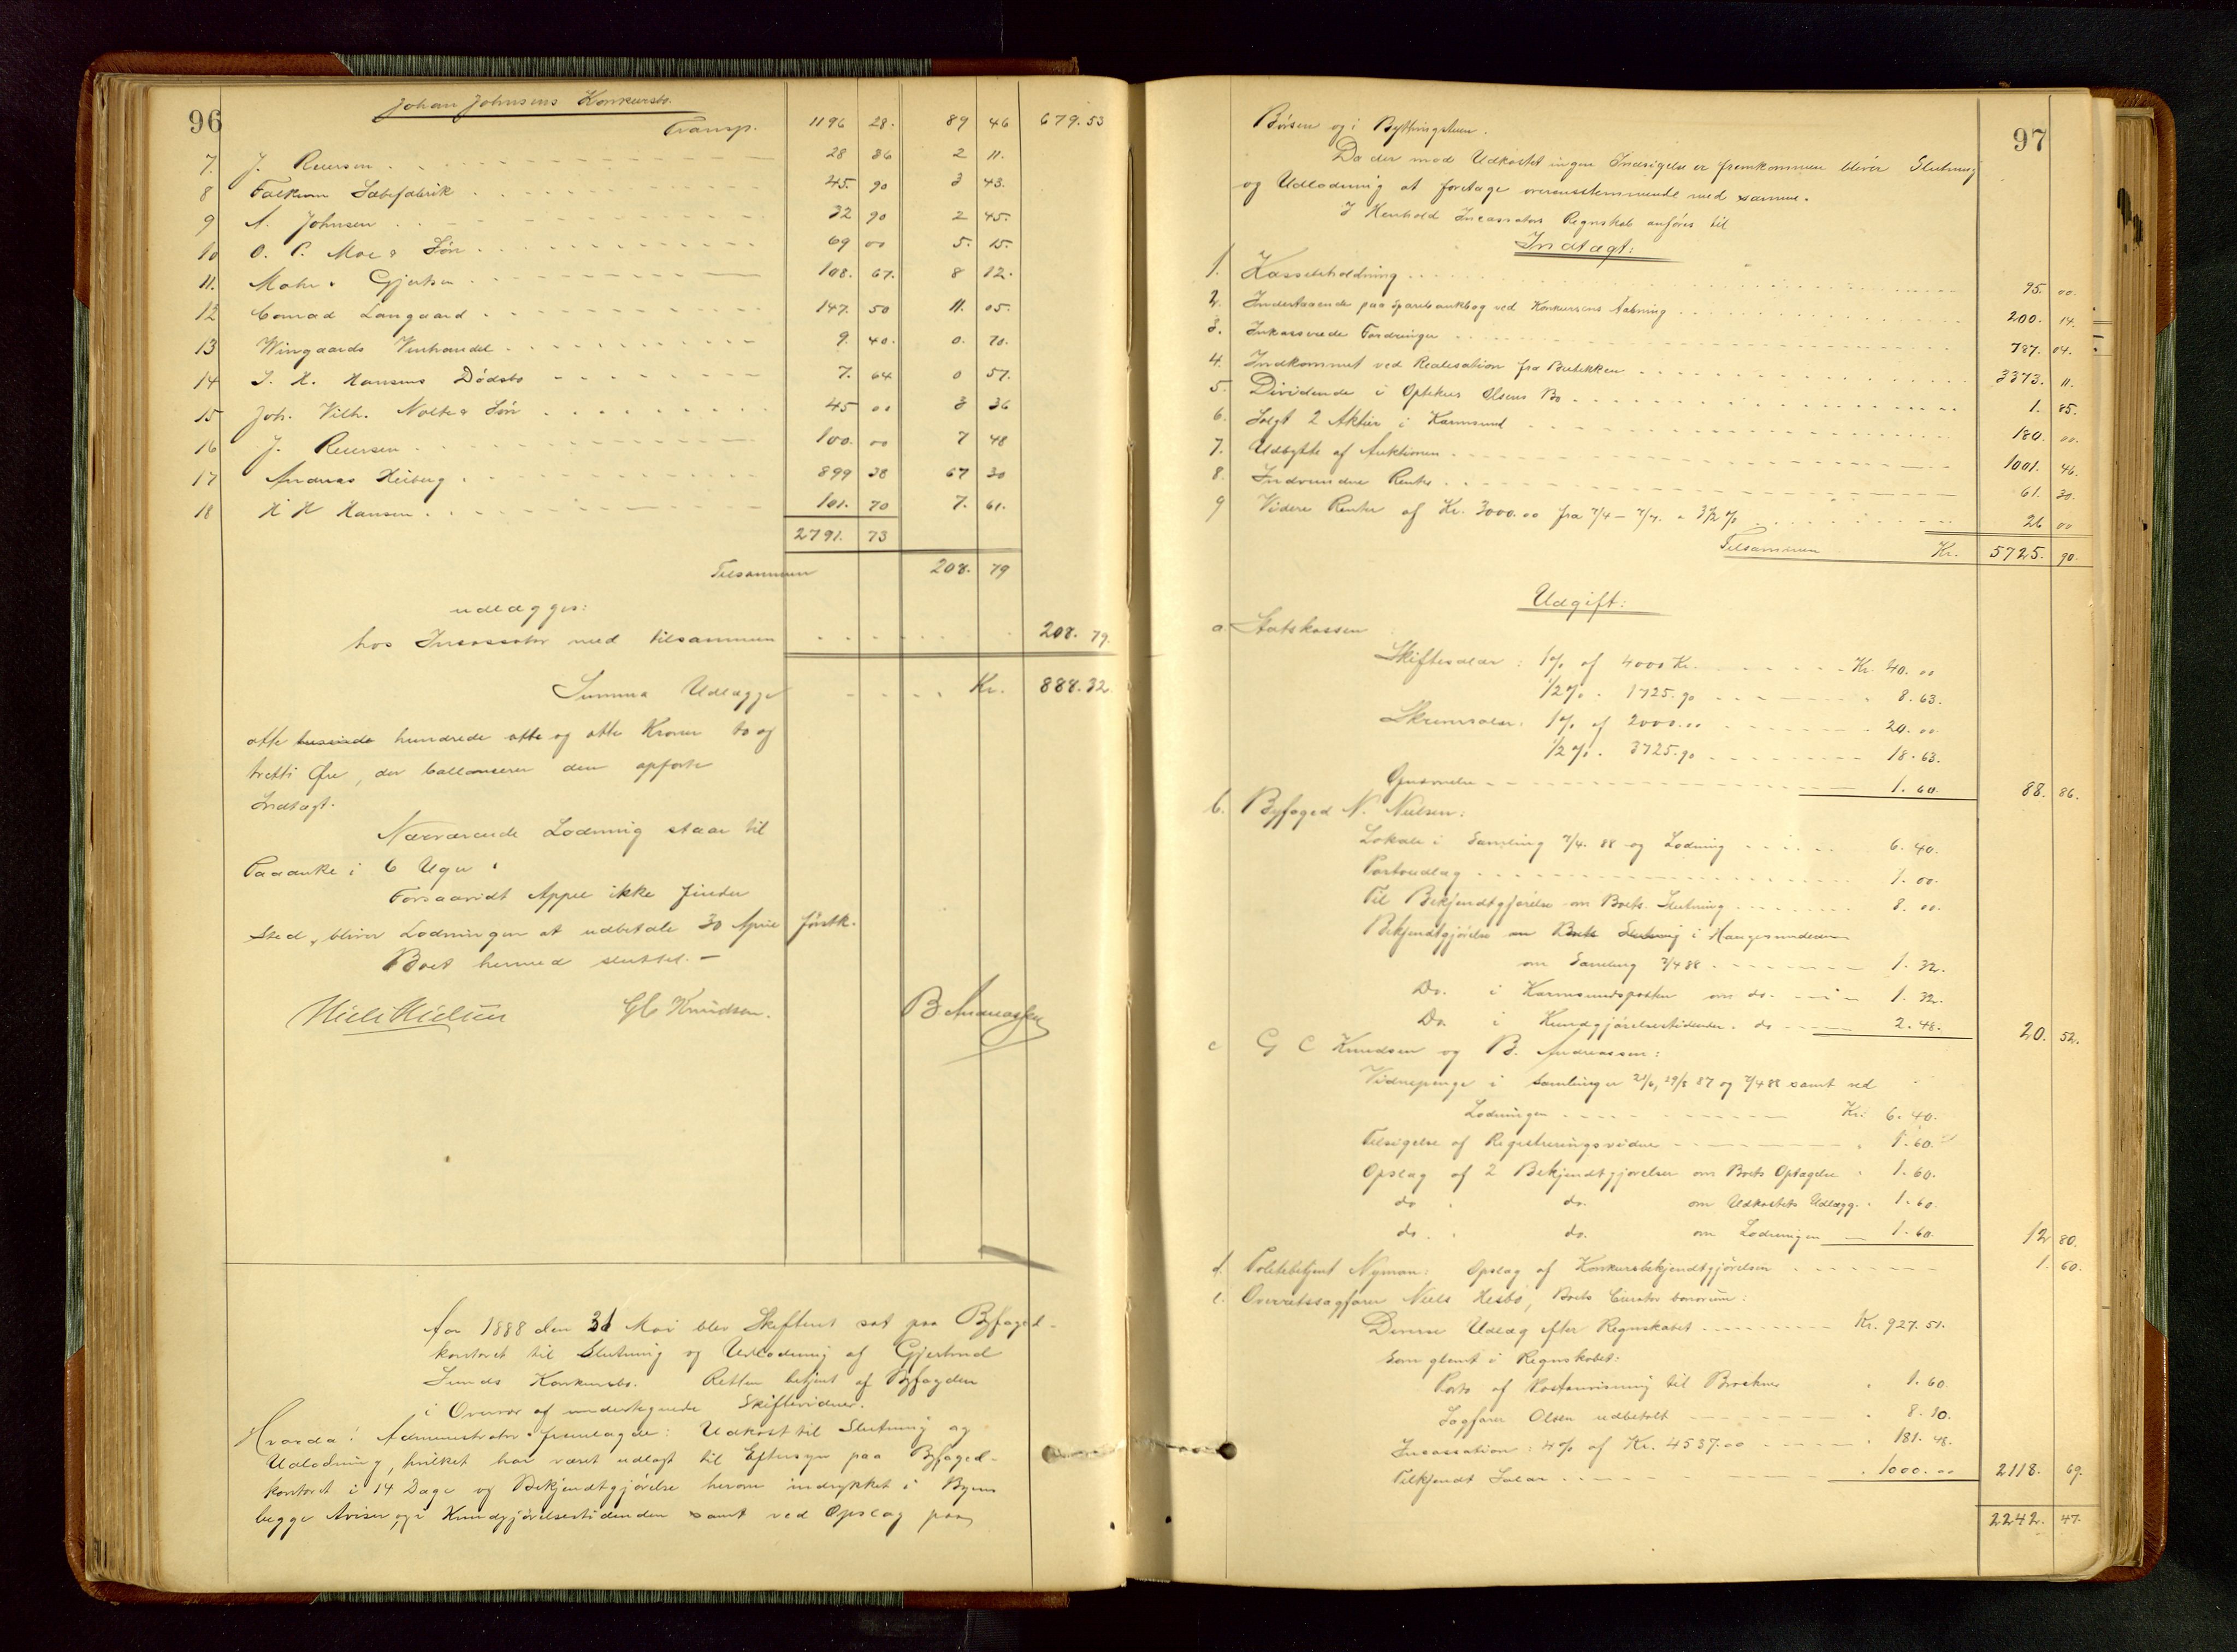 96
Johan Johnsens Konkursbo.
Transp. 1196 28. 89 46 679.53
7. J. Reiersen 28 86 2 11.
8 Falkum Sæbefabrik 45. 90 3 43.
9 A. Johnsen 32 90 2 45.
10 O. P. Moe & Søn 69 00 5. 15.
11. Mohr & Gjertsen 108. 67. 8 12.
12 Conrad Langaard 147. 50 11. 05.
13 Wingaards Vinhandel 9. 40. 0. 70.
14 J. H. Hansens Dødsbo 7. 64 0 57.
15 Joh. Vilh. Nolte & Søn 45 00 3 36
16 J. Reiersen 100. 00 7 48
17 Andreas Heiberg 899 38 67 30
18 H H Hansen 101. 70 7. 61.
2791. 73
Tilsammen 208. 79
udlægges:
hos Incassator med tilsammen 208. 79.
Summa Udlægge Kr. 888.32
otte tusinde hundrede otte og otte Kroner to og
tretti Øre, der ballanserer den opførte
Indtægt.
Nærværende Lodning staar til
Paaanke i 6 Uger.
Forsaavidt Appel ikke finder
Sted, bliver Lodningen at udbetale 30 April førstk.
Boet hermed sluttet. —
Niels Nielsen G C Knudsen. B Andreassen
Aar 1888 den 31 Mai blev Skifteret sat paa Byfoged-
kontoret til Slutning og Udlodning af Gjertrud
Lunds Konkursbo. Retten betjent af Byfogden
i Overvær af undertegnede Skiftevidner.
Hvorda: Administrator fremlagde: Udkast til Slutning og
Udlodning, hvilket har været udlagt til Eftersyn paa Byfoged-
kontoret i 14 Dage og Bekjendtgjørelse herom indrykket i Byens
begge Aviser, og i Kundgjørelsestidenden samt ved Opslag paa
97
Børsen og i Bythingstuen.
Da der mod Udkastet ingen Indsigelse er fremkommen bliver Slutning
og Udlodning at foretage overensstemmende med samme.
I Henhold Incassators Regnskab anføres til
Indtægt:
1. Kassebeholdning 95. 00.
2. Indestaaende paa Sparebankbog ved Konkursens Aabning 200. 14.
3. Inkasserede Fordringer 787. 04.
4. Indkommet ved Realisation fra Butikken 3373. 11.
5. Dividende i Optikus Olsens Bo 1. 85.
6. Solgt 2 Aktier i Karmsund 180. 00.
7. Udbytte af Auktionen 1001. 46.
8. Indvundne Renter 61. 30.
9 Videre Renter af Kr. 3000.00 fra 7/4 – 7/7. a 3½ % 26 00
Tilsammen Kr. 5725. 90.
Udgift:
a. Statskassen
Skiftesalær: 1% af 4000 Kr. Kr. 40. 00
½%. 1725.90 8. 63.
Skriversalær: 1% af 2000.00 20. 00
½%. 3725.90 18. 63.
1. 60. 88. 86.
b. Byfoged N. Nielsen:
Lokale i Samling 7/4. 88 og Lodning 6. 40.
Portoudlæg 1. 00.
Til Bekjendtgjørelse om Boets Slutning 8. 00.
Bekjendtgjørelse om Boets Slutning i Haugesunderen
om Samling 7/4 88 1. 32.
Do. i Karmsundsposten om do. 1. 32.
Do. i Kundgjørelsestidenden. do 2. 48. 20. 52.
c G C Knudsen og B. Andreassen:
Vidnepenge i Samlinger 21/6, 29/8 87 og 7/4 88 samt ved
Lodningen Kr. 6. 40.
Tilsigelse af Registreringsvidne 1. 60.
Opslag af 2 Bekjendtgjørelser om Boets Optagelse 1. 60.
do do. om Udkastets Udlægg. 1. 60.
do. do. om Lodningen 1. 60. 12 80.
d. Politibetjent Nyman: Opslag af Konkursbekjendtgjørelsen 1. 60.
e. Overretssagfører Niels Hesbø, Boets Curator bonorum:
Diverse Udlæg efter Regnskabet Kr. 927. 51.
Som glemt i Regnskabet:
Porto af Postanvisning til 1. 60
Sagfører Olsen udbetalt 8. 10.
Incassation: 4% af Kr. 4537.00 181. 48.
Tilkjendt Salær 1000. 00 2118. 69.
2242. 47.